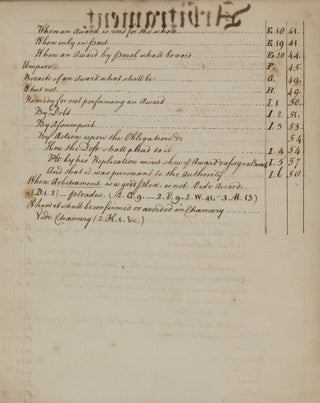 Arbitrament
When an Award is void for the whole E.18 41.
When only in part E.19 41.
When an Award by parol shall be void E.20 44.
Umpire F. 45.
Breach of an Award what shall be G. 49.
What not H. 49.
Remedy for not performing an Award I.1 50.
By Debt I.2 51.
By Assumpsit I.3 53.
By Action upon the Obligation &c 54
How the Deft shall plead to it I.4 54
Plt by his Replication must shew ye Award & assign a Breach I.5 57
And that it was pursuant to the Authority I.6 58
When Arbitrament is a good plea, or not. Vide Accord.
D.1.2. pleader. (2.V.9. 2.W.41. 3.M.13.)
When it shall be confirmed or avoided in Chancery
Vide Chancery (2.K.1. &c.)